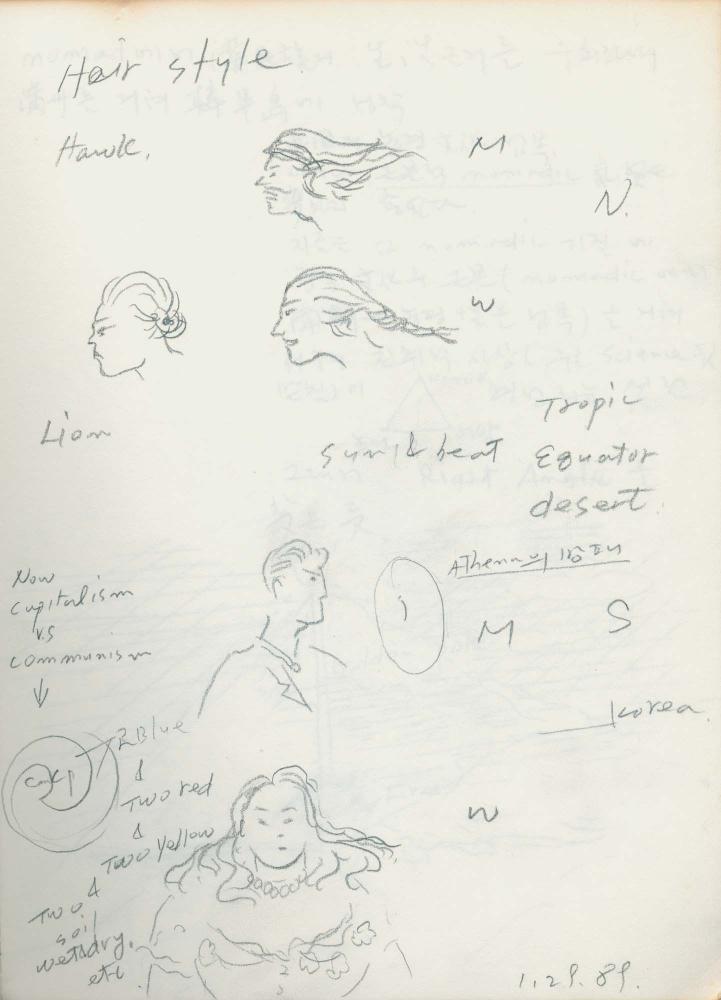 Hair style.
Hawk.
M
N.
W
Lion
Tropic
sun & heat Equator
desert.
Athena의 방패
M S
Now
capitalism
v.s
communism
Korea.
2Blue
Two red
Two yellow
W
Two
soil
wet&dry.
etc
1.29.89.